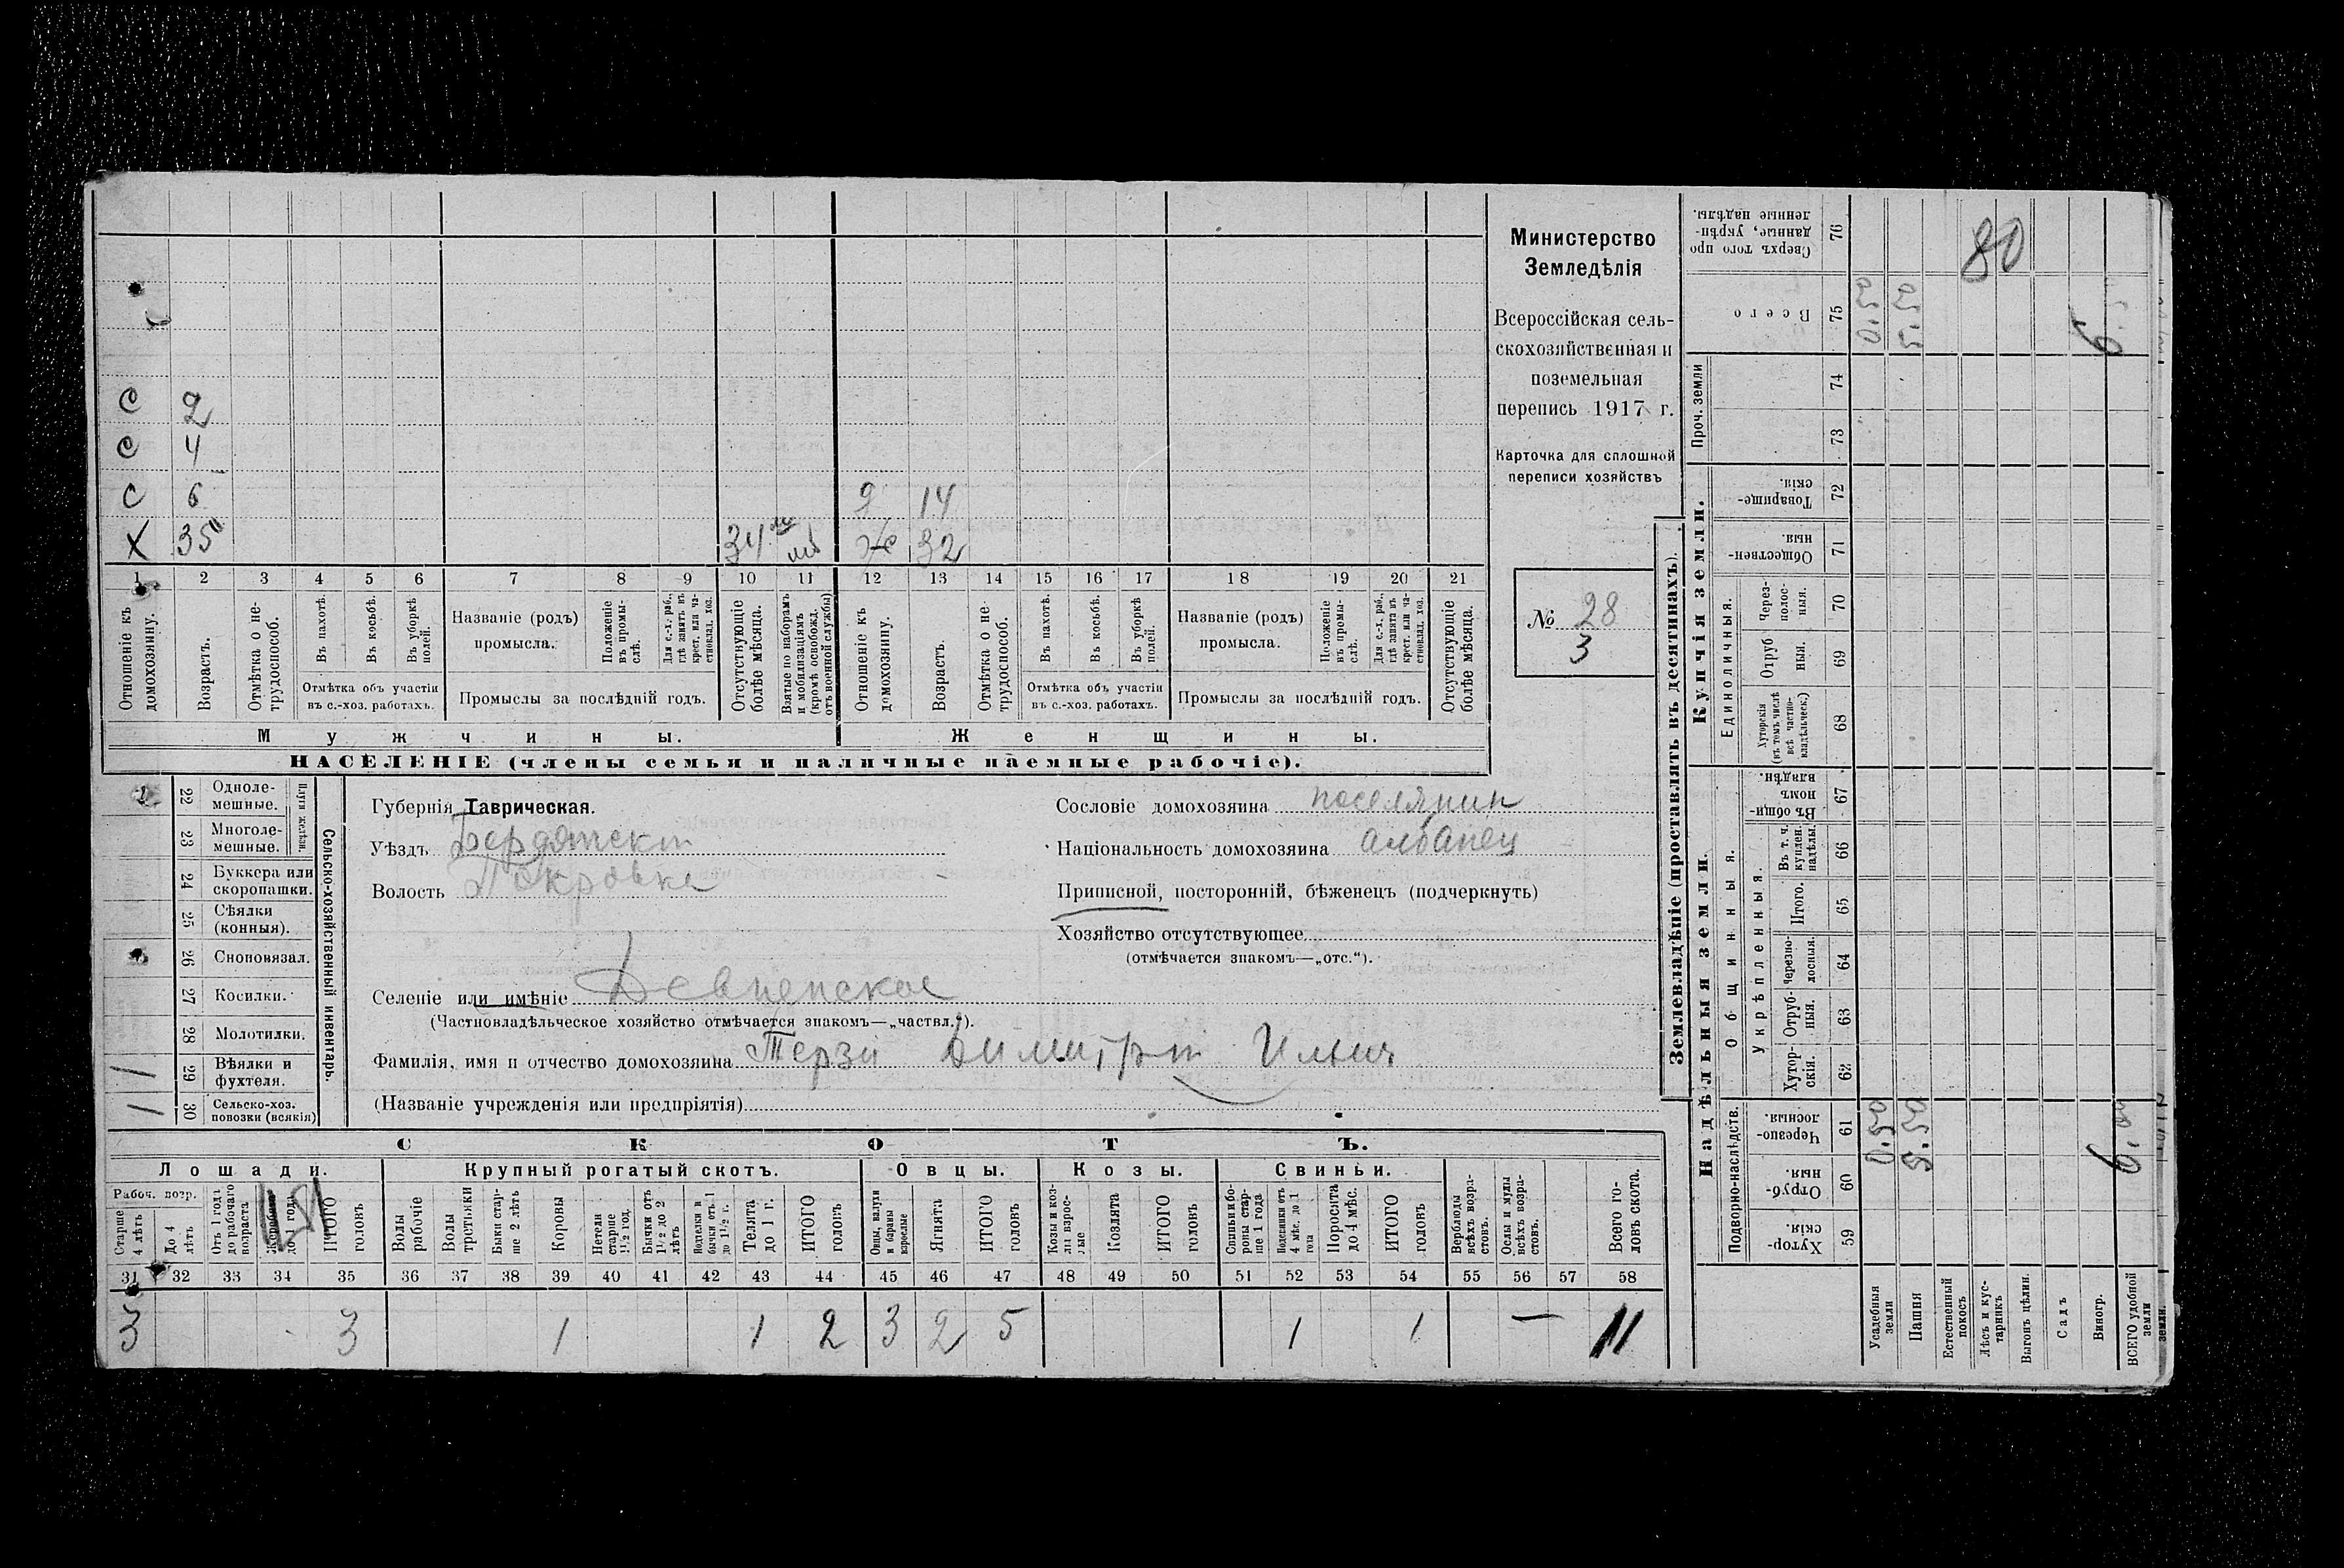 С 2
С 4
С 6 9 14
Х 35 Ж 32
1 2 3 4 5 6 7 8 9 10 11 12 13 14 15 16 17 18 19 20 21
Отношеніе къ домохозяину.
Возрастъ.
Отмѣтка о не-трудоспособ.
Въ пахотѣ.
Въ косьбѣ.
Въ уборкѣ полей.
Отмѣтка объ участіи
въ с.-хоз. работахъ.
Названіе (родъ)
промысла.
Положеніе въ промы-слѣ.
Для с.-х. раб., гдѣ занятъ въ крест. или ча-стновлад. хоз.
Промыслы за послѣдній годъ.
Отсутствующіе болѣе мѣсяца.
Взятые по наборамъ и мобилизаціямъ (кромѣ освобожд. отъ военной службы)
Отношеніе къ домохозяину.
Возрастъ.
Отмѣтка о не-трудоспособ.
Въ пахотѣ.
Въ косьбѣ.
Въ уборкѣ полей.
Отмѣтка объ участіи
въ с.-хоз. работахъ.
Названіе (родъ)
промысла.
Положеніе въ промы-слѣ.
Для с.-х. раб., гдѣ занята въ крест. или ча-стновлад. хоз.
Промыслы за послѣдній годъ.
Отсутствующіе болѣе мѣсяца.
Мужчины.
Женщины.
НАСЕЛЕНІЕ (члены семьи и наличные наемные рабочіе).
Министерство
Земледѣлія
Всероссійская сель-
скохозяйственная и
поземельная
перепись 1917 г.
Карточка для сплошной
переписи хозяйствъ
№ 28
3
22 Одноле-мешные.
23 Многоле-мешные.
Плуги желѣзн.
24 Буккера или скоропашки.
25 Сѣялки (конныя).
26 Сноповязал.
27 Косилки.
28 Молотилки.
1 29 Вѣялки и фухтеля.
1 30 Сельско-хоз. повозки (всякія)
Сельско-хозяйственный инвентарь.
Губернія Таврическая.
Уѣздъ Бердянскій
Волость Покровка
Селеніе или имѣніе Девненское
(Частновладѣльческое хозяйство отмѣчается знакомъ—„частвл.“).
Фамилія, имя и отчество домохозяина Терзи Димитрій Ильич
(Названіе учрежденія или предпріятія)
Сословіе домохозяина поселянин
Національность домохозяина албанец
Приписной, посторонній, бѣженецъ (подчеркнуть)
Хозяйство отсутствующее
(отмѣчается знакомъ—„отс.“).
СКОТЪ.
Лошади.
Крупный рогатый скотъ.
Овцы.
Козы.
Свиньи.
Рабоч. возр.
Старше 4 лѣтъ
До 4 лѣтъ
Отъ 1 года до рабочаго возраста
Жеребята до 1 года
ИТОГО головъ
Волы рабочіе
Волы третьяки
Быки стар-ше 2 лѣтъ
Коровы
Нетели старше 1½ год.
Бычки отъ 1½ до 2 лѣтъ
Подтелки и бычки отъ 1 до 1½ г.
Телята до 1 г.
ИТОГО головъ
Овцы, валухи и бараны взрослые
Ягнята
ИТОГО головъ
Козы и коз-лы взрос-лые
Козлята
ИТОГО головъ
Свиньи и бо-ровы стар-ше 1 года
Подсвинки отъ 4 мѣс. до 1 года
Поросята до 4 мѣс.
ИТОГО головъ
Верблюды всѣхъ возра-стовъ.
Ослы и мулы всѣхъ возра-стовъ.
Всего го-ловъ скота.
31 32 33 34 35 36 37 38 39 40 41 42 43 44 45 46 47 48 49 50 51 52 53 54 55 56 57 58
3 3 1 1 2 3 2 5 1 1 — 11
Землевладѣніе (проставлять въ десятинахъ).
Надѣльныя земли.
Купчія земли.
Проч. земли
Подворно-наслѣдств.
Общинныя.
Укрѣпленныя.
Единоличныя.
59 Хутор-скія.
60 Отруб-ныя.
61 Черезпо-лосныя.
62 Хутор-скія.
63 Отруб-ныя.
64 Черезпо-лосныя.
65 Итого.
66 Въ т. ч. куплен. надѣлы.
67 Въ общи-номъ владѣн.
68 Хуторскія (въ томъ числѣ всѣ частно-владѣльческ.)
69 Отруб-ныя.
70 Через-полос-ныя.
71 Обществен-ныя.
72 Товарище-скія.
73
74
75 Всего
76 Сверхъ того про-данные, укрѣп-ленные надѣлы.
80
Усадебныя земли
Пашня
Естественный покосъ
Лѣсъ и кус-тарникъ
Выгонъ цѣлин.
Садъ
Виногр.
ВСЕГО удобной земли